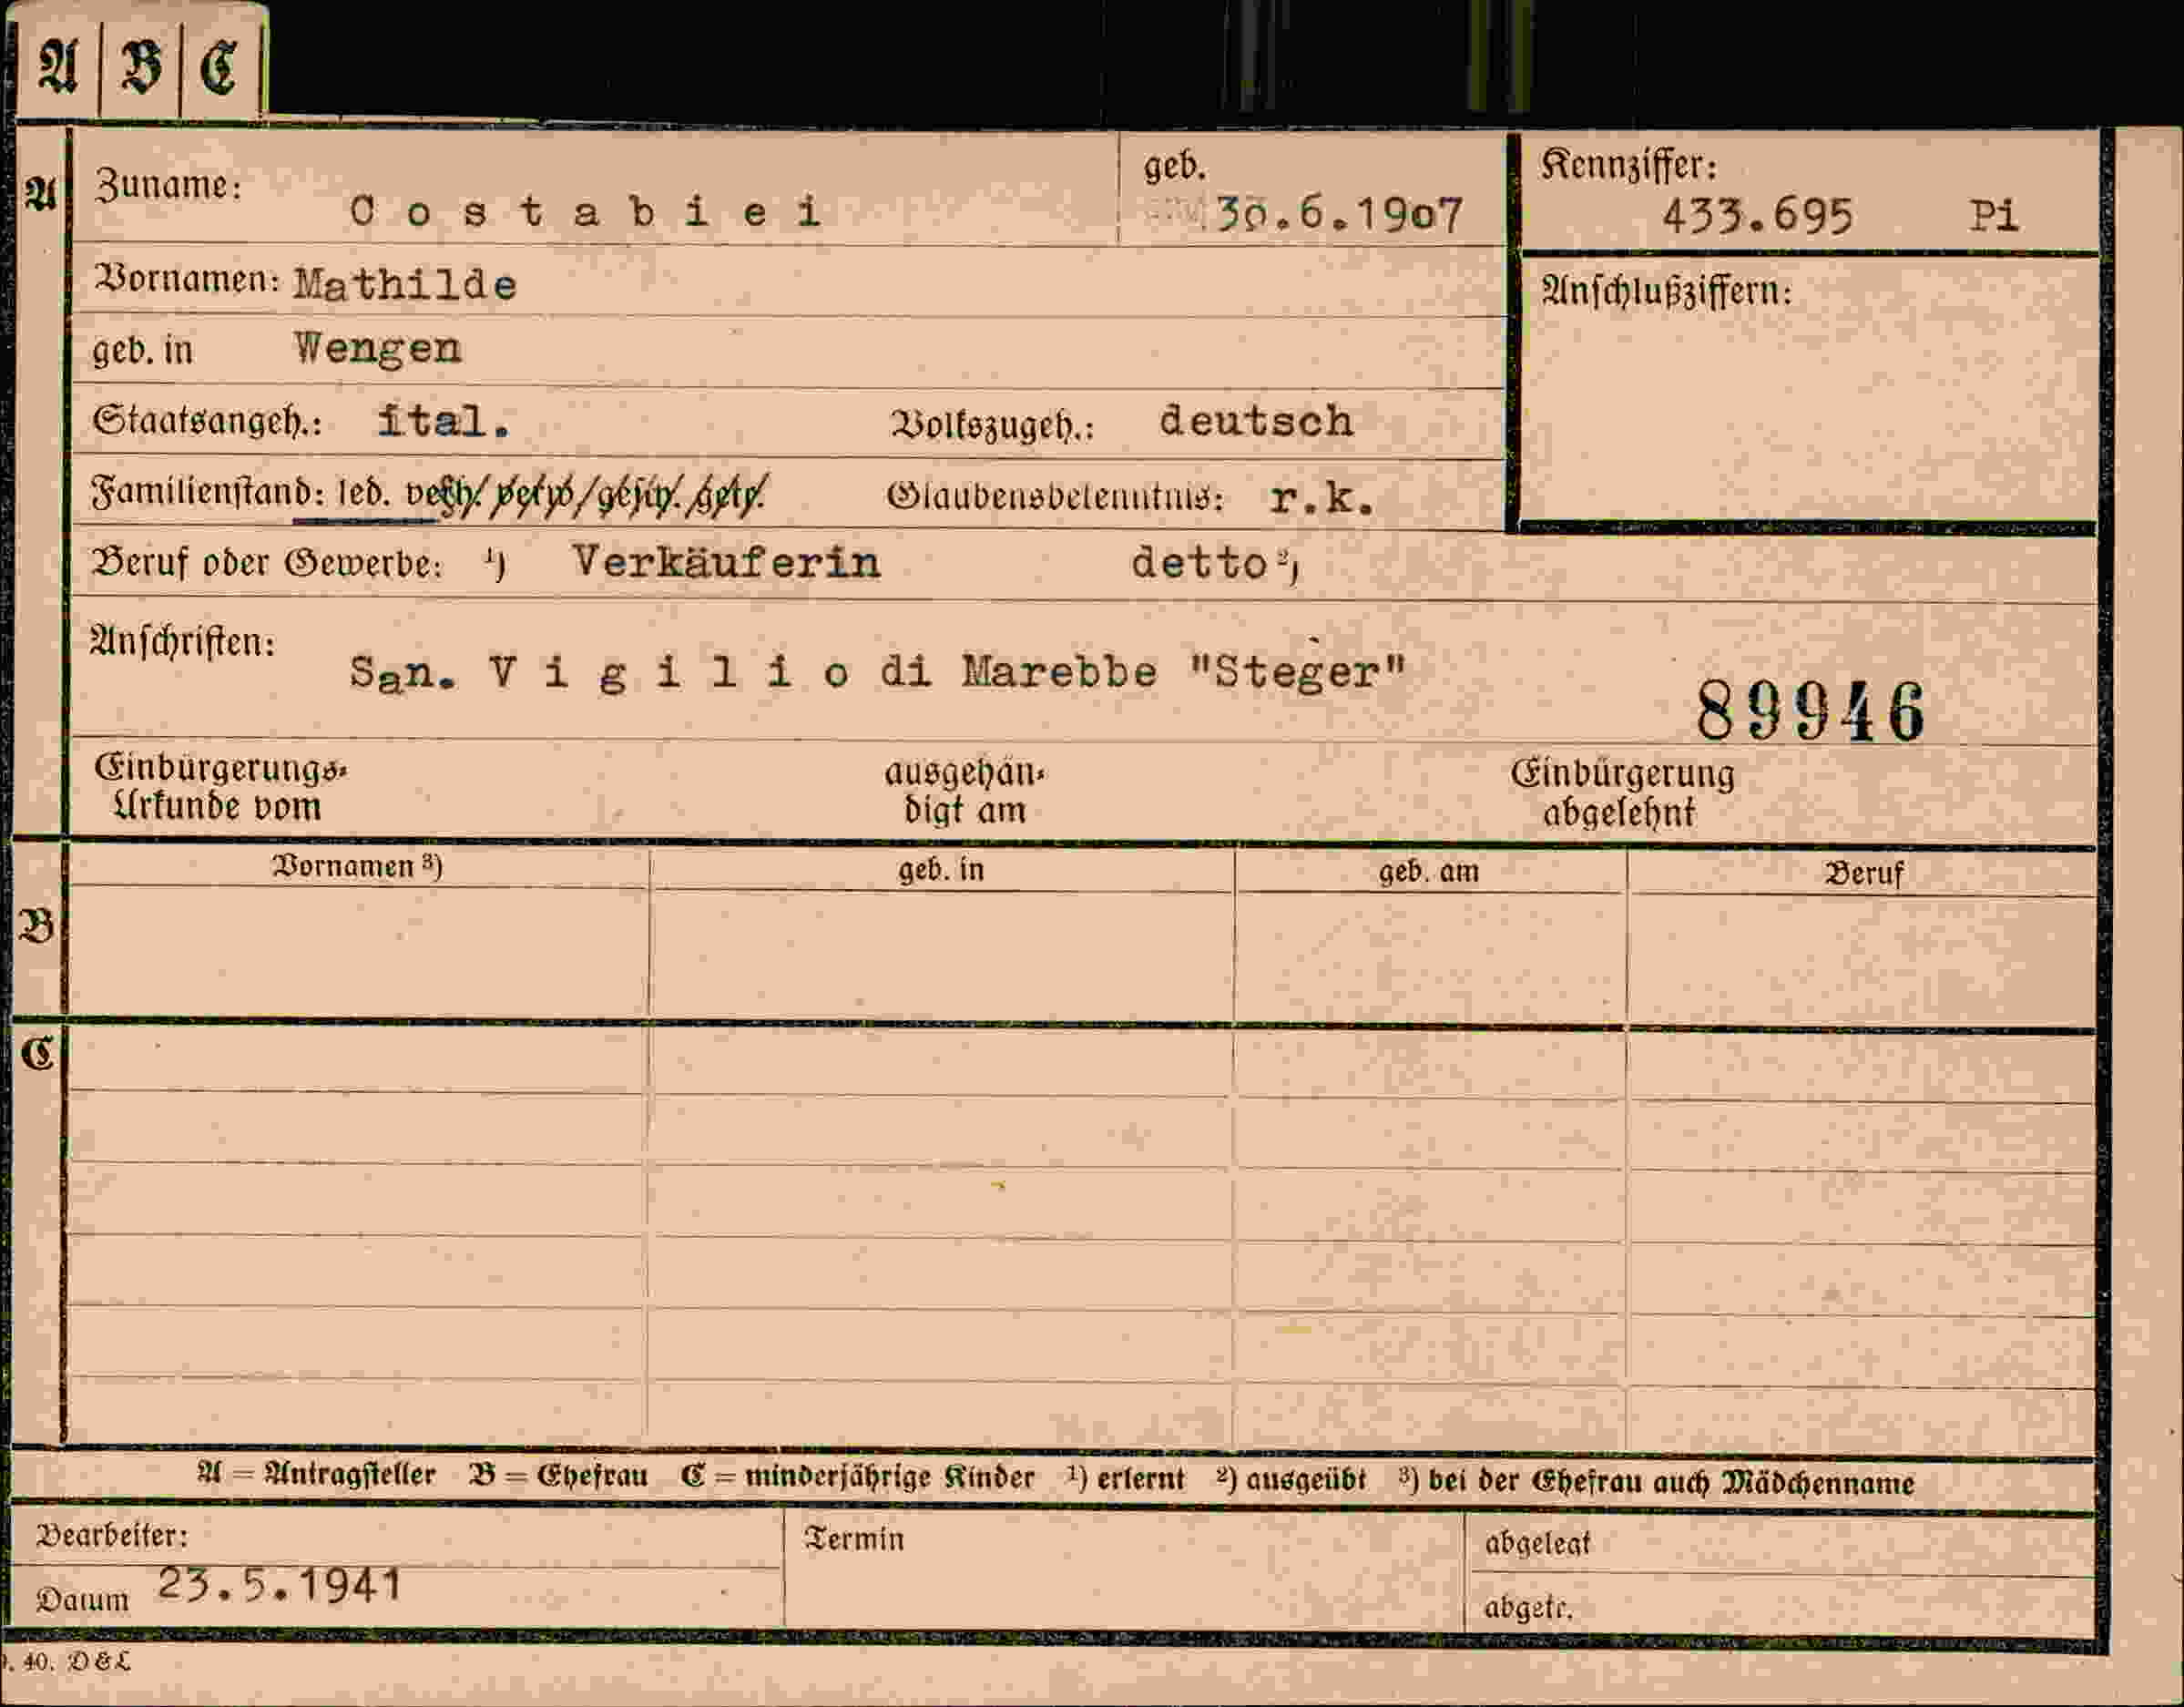 A B C
A Zuname: Costabiei geb. 30.6.1907 Kennziffer: 433.695 Pi
Vornamen: Mathilde Anschlußziffern:
geb. in Wengen
Staatsangeh.: ital. Volkszugeh.: deutsch
Familienstand: led. verh. verw. gesch. getr. Glaubensbekenntnis: r.k.
Beruf oder Gewerbe: ¹) Verkäuferin detto ²)
Anschriften: San. Vigilio di Marebbe "Steger"
89946
Einbürgerungs- ausgehän- Einbürgerung
Urkunde vom digt am abgelehnt
Vornamen ³) geb. in geb. am Beruf
B
C
A = Antragsteller B = Ehefrau C = minderjährige Kinder ¹) erlernt ²) ausgeübt ³) bei der Ehefrau auch Mädchenname
Bearbeiter: Termin abgelegt
Datum 23.5.1941 abgetr.
40. D&L